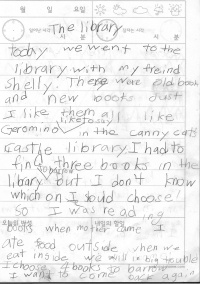 월 일 요일
The library
today we went to the
library with my freind
Shelly. There were old book
and new books but
I like them all like
like to say
Geromino in the canny cat's
castle library I had to
find three books in the
to borrow
library but I don't know
which on I sould choose!
So I was read ing
books when mother came I
ate food outside when we
eat inside we will in big trouble
I choose 4 books to barrow
I want to come back again